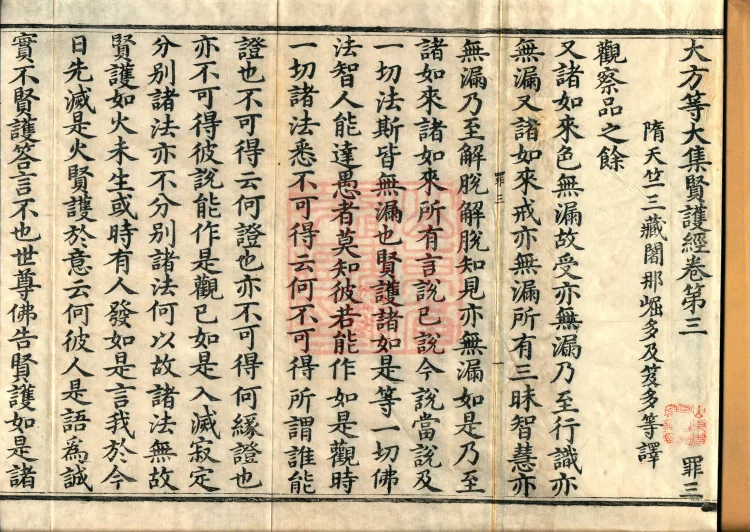 大方等大集賢護經卷第三 罪三
隋天竺三藏闍那崛多及笈多等譯
觀察品之餘
又諸如來色無漏故受亦無漏乃至行識亦
無漏又諸如來戒亦無漏所有三昧智慧亦
無漏乃至解脫解脫知見亦無漏如是乃至
諸如來諸如來所有言說已說今說當說及
一切法斯皆無漏也賢護諸如是等一切佛
法智人能達愚者莫知彼若能作如是觀時
一切諸法悉不可得云何不可得所謂誰能
證也不可得云何證也亦不可得何緣證也
亦不可得彼說能作是觀已如是入滅寂定
分別諸法亦不分別諸法何以故諸法無故
賢護如火未生或時有人發如是言我於今
日先滅是火賢護於意云何彼人是語為誠
實不賢護答言不也世尊佛告賢護如是諸
罪三
一